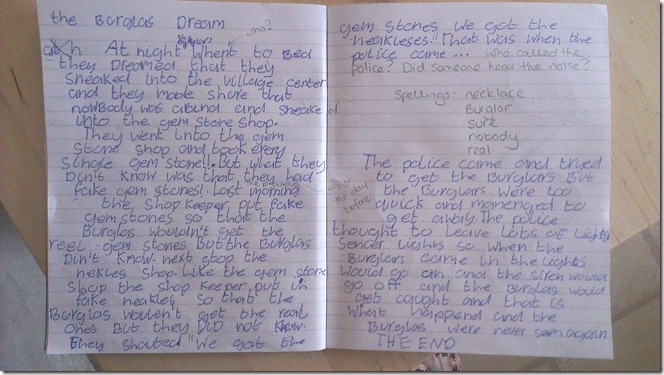 the Burglas Dream
who?
At night Whent to Bed
they Dreamed that they
sneaked into the village center
and they made shore that
nowBody was around and sneaked
into the gem stone shop.
They went into the gem
stone shop and took every
single gem stone!!. But what they
Don't know was that they had
fake gem stones!. Last morning
the previous
or
the day
before
the shop keeper put fake
gem stones so that the
Burglas wouldn't get the
reel gem stones but the Burglas
Din't know. next stop the
nekles shop. Like the gem stone
shop the shop keeper put in
fake neakles so that the
Burglas wouln't get the real
ones But they DiD not know.
They shouted "We got the
gem stones we got the
neakleses." That was when the
police came ... who called the
police? Did someone hear the noise?
Spellings: necklace
Burglar
sure
nobody
real
The police came and tryed
to get the Burglars But
the Burglars were too
quick and manenged to
get away. The police
thought to leave lots of lights
sencer lights so when the
Burglars came in the lights
would go on and the siren would
go off and the Burglas would
get caught and that is
what happend and the
Burglas were never seen again.
THE END